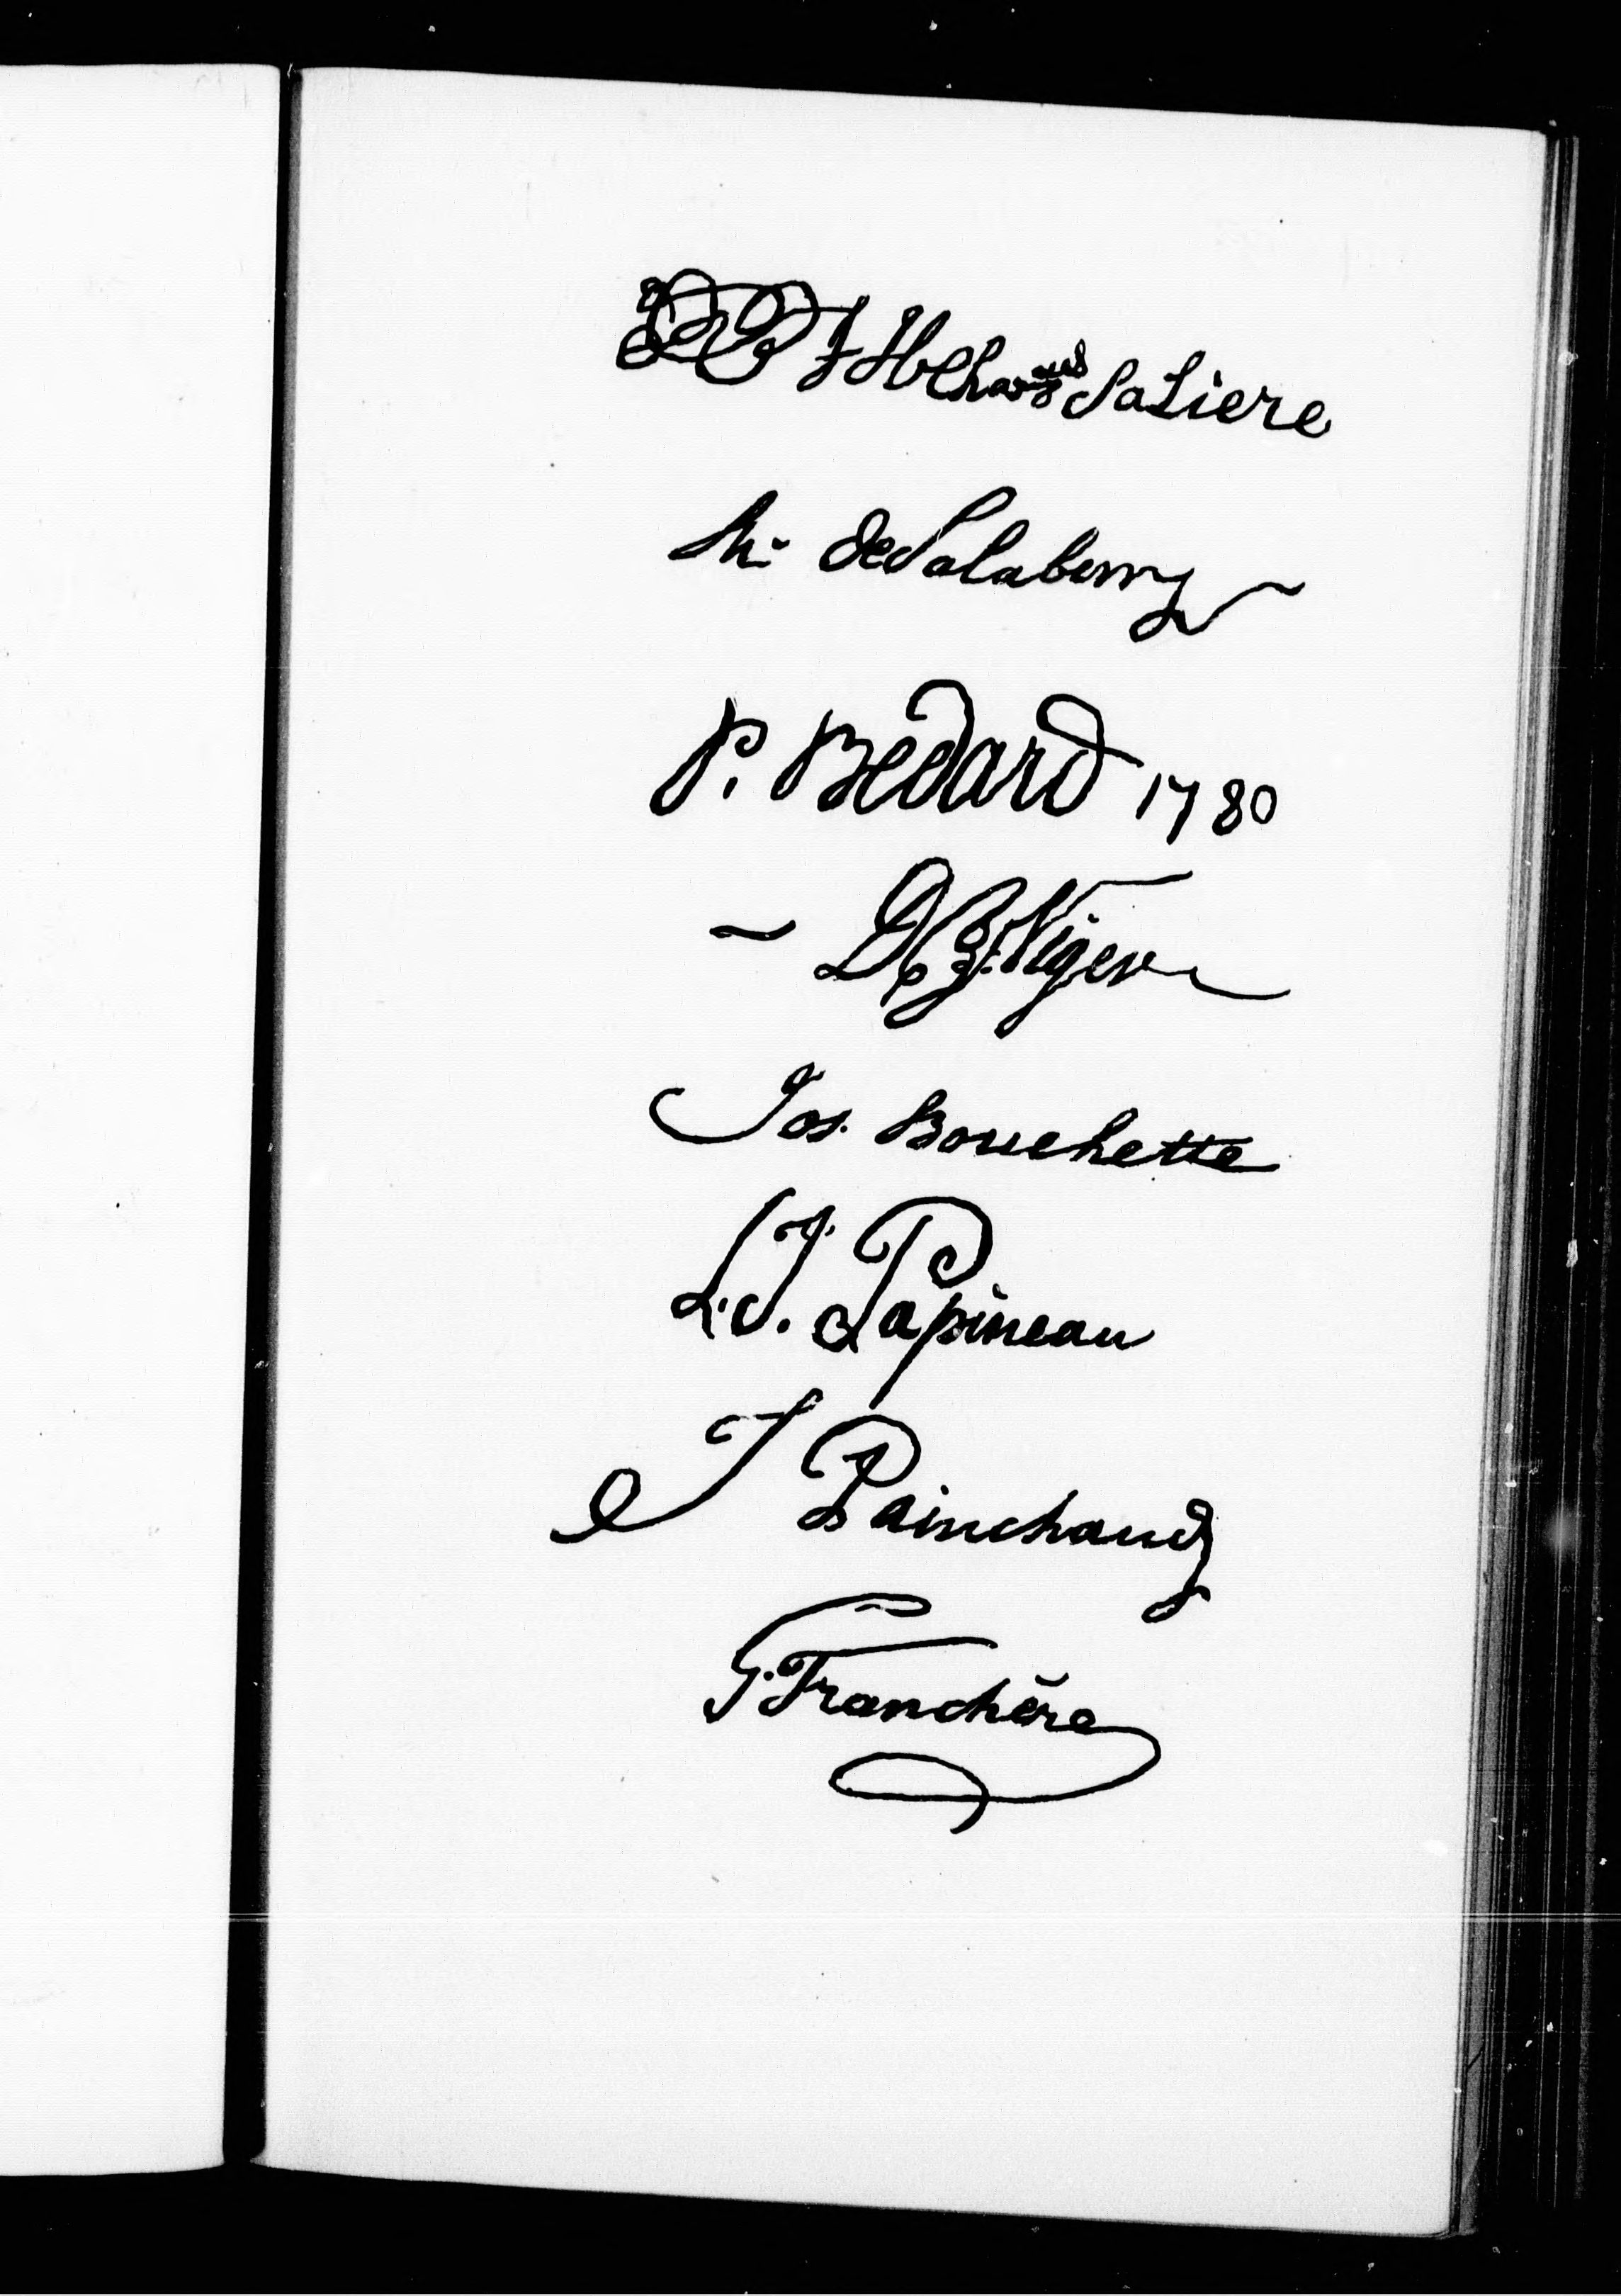 SaLiere
de Salaberry
P. Bedard 1780
D. B. Viger
Jos. Bouchette
L. J. Papineau
J Painchaud
G. Franchère